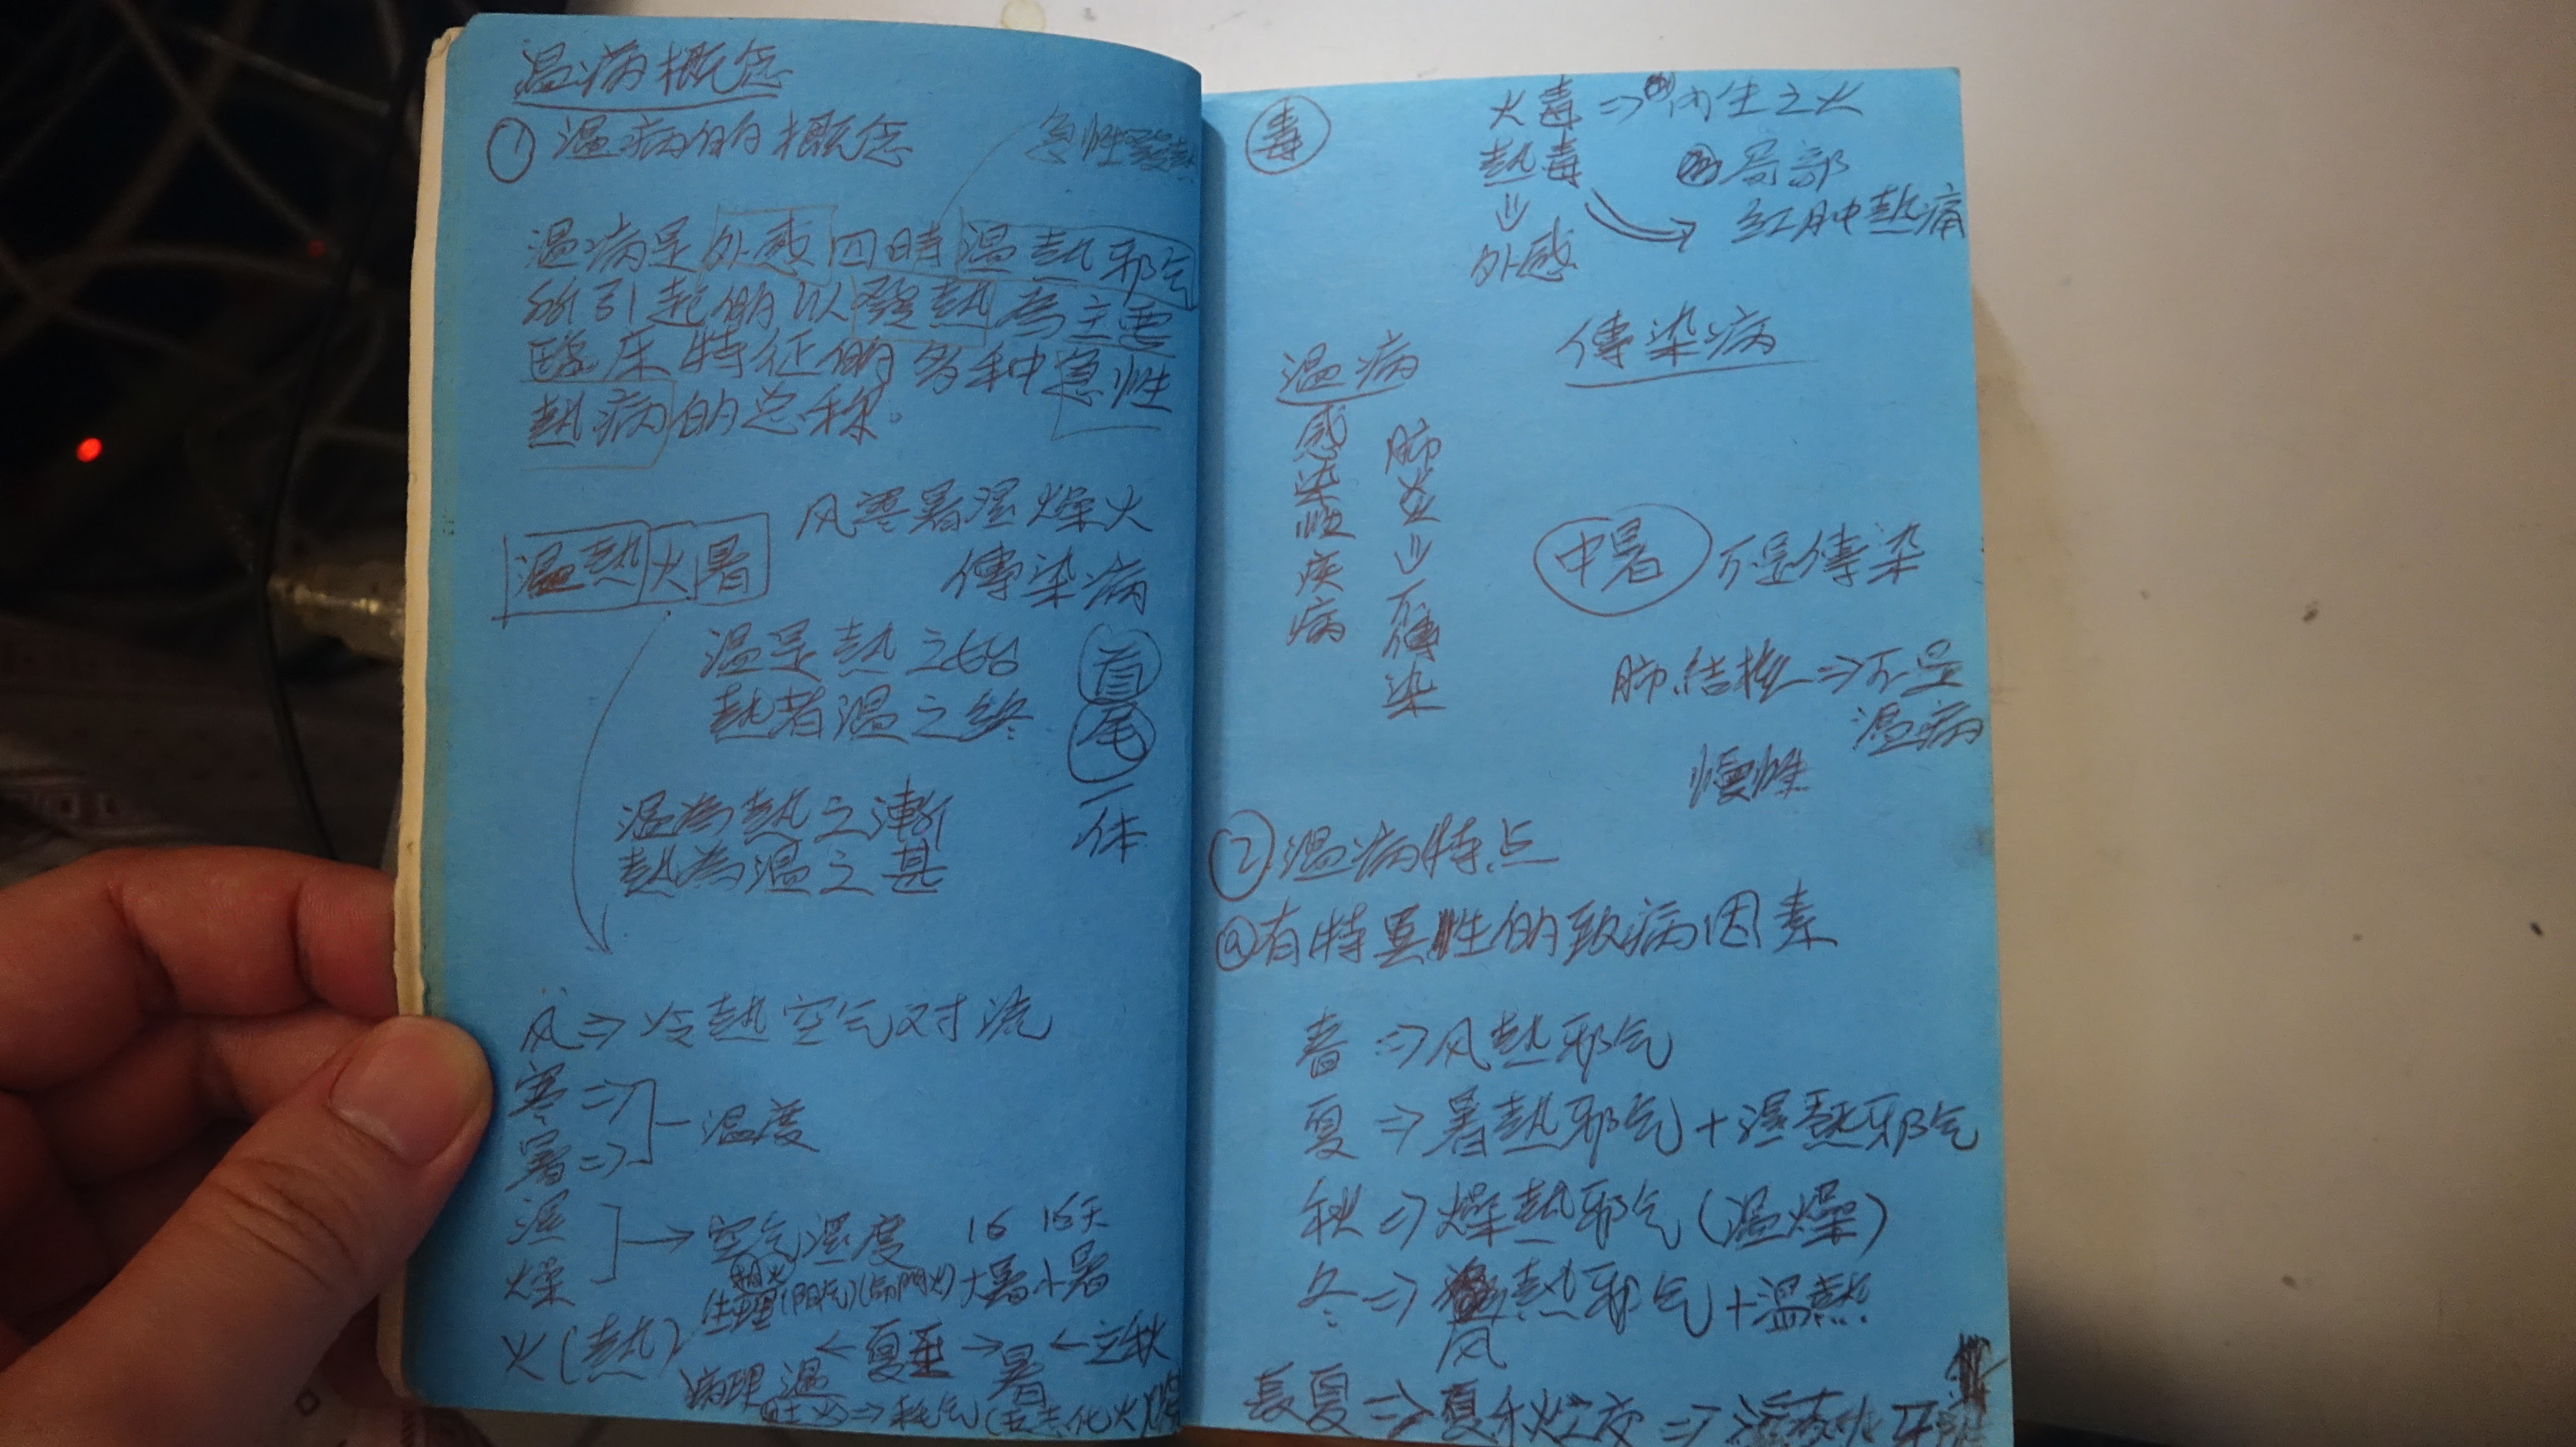 温病概念
① 温病的概念
急性發熱
温病是外感四時温熱邪气
所引起的以發熱為主要
臨床特征的多种急性
熱病的总称。
风寒暑湿燥火
温熱火暑
傳染病
温是熱之始
熱者温之終
首尾一体
温為熱之漸
熱為温之甚
风⇒冷熱空气对流
寒⇒
暑⇒
温度
湿
燥
→空气湿度 16 16天
相火
生理(阳气)(命門火)大暑小暑
火(熱)
病理 温←夏至→暑←立秋
壮火⇒耗气(五志化火)
毒
火毒⇒内生之火
熱毒 局部
红肿熱痛
⇓
外感
傳染病
温病
感染性疾病
肺炎⇓不傳染
中暑 不是傳染
肺结核⇒不是
温病
慢性
② 温病特点
ⓐ有特異性的致病因素
春⇒风熱邪气
夏⇒暑熱邪气+湿熱邪气
秋⇒燥熱邪气(温燥)
冬⇒熱邪气+温熱
风
長夏⇒夏秋之交⇒湿熱邪